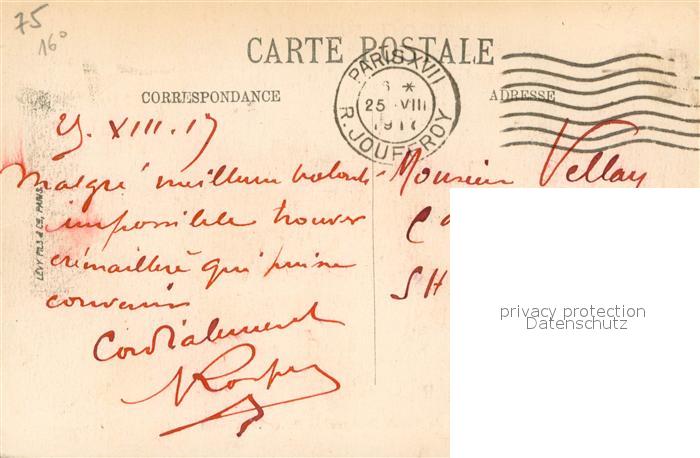 75
16°
CARTE POSTALE
PARIS XVII
6 *
25 VIII
1917
R. JOUFFROY
CORRESPONDANCE
ADRESSE
25. XIII. 17
Malgré meilleure volonté
impossible trouver
crémaillère qui puisse
convenir
Cordialement
Monsieur Vellay
C
SH
LÉVY FILS & CIE, PARIS
privacy protection
Datenschutz